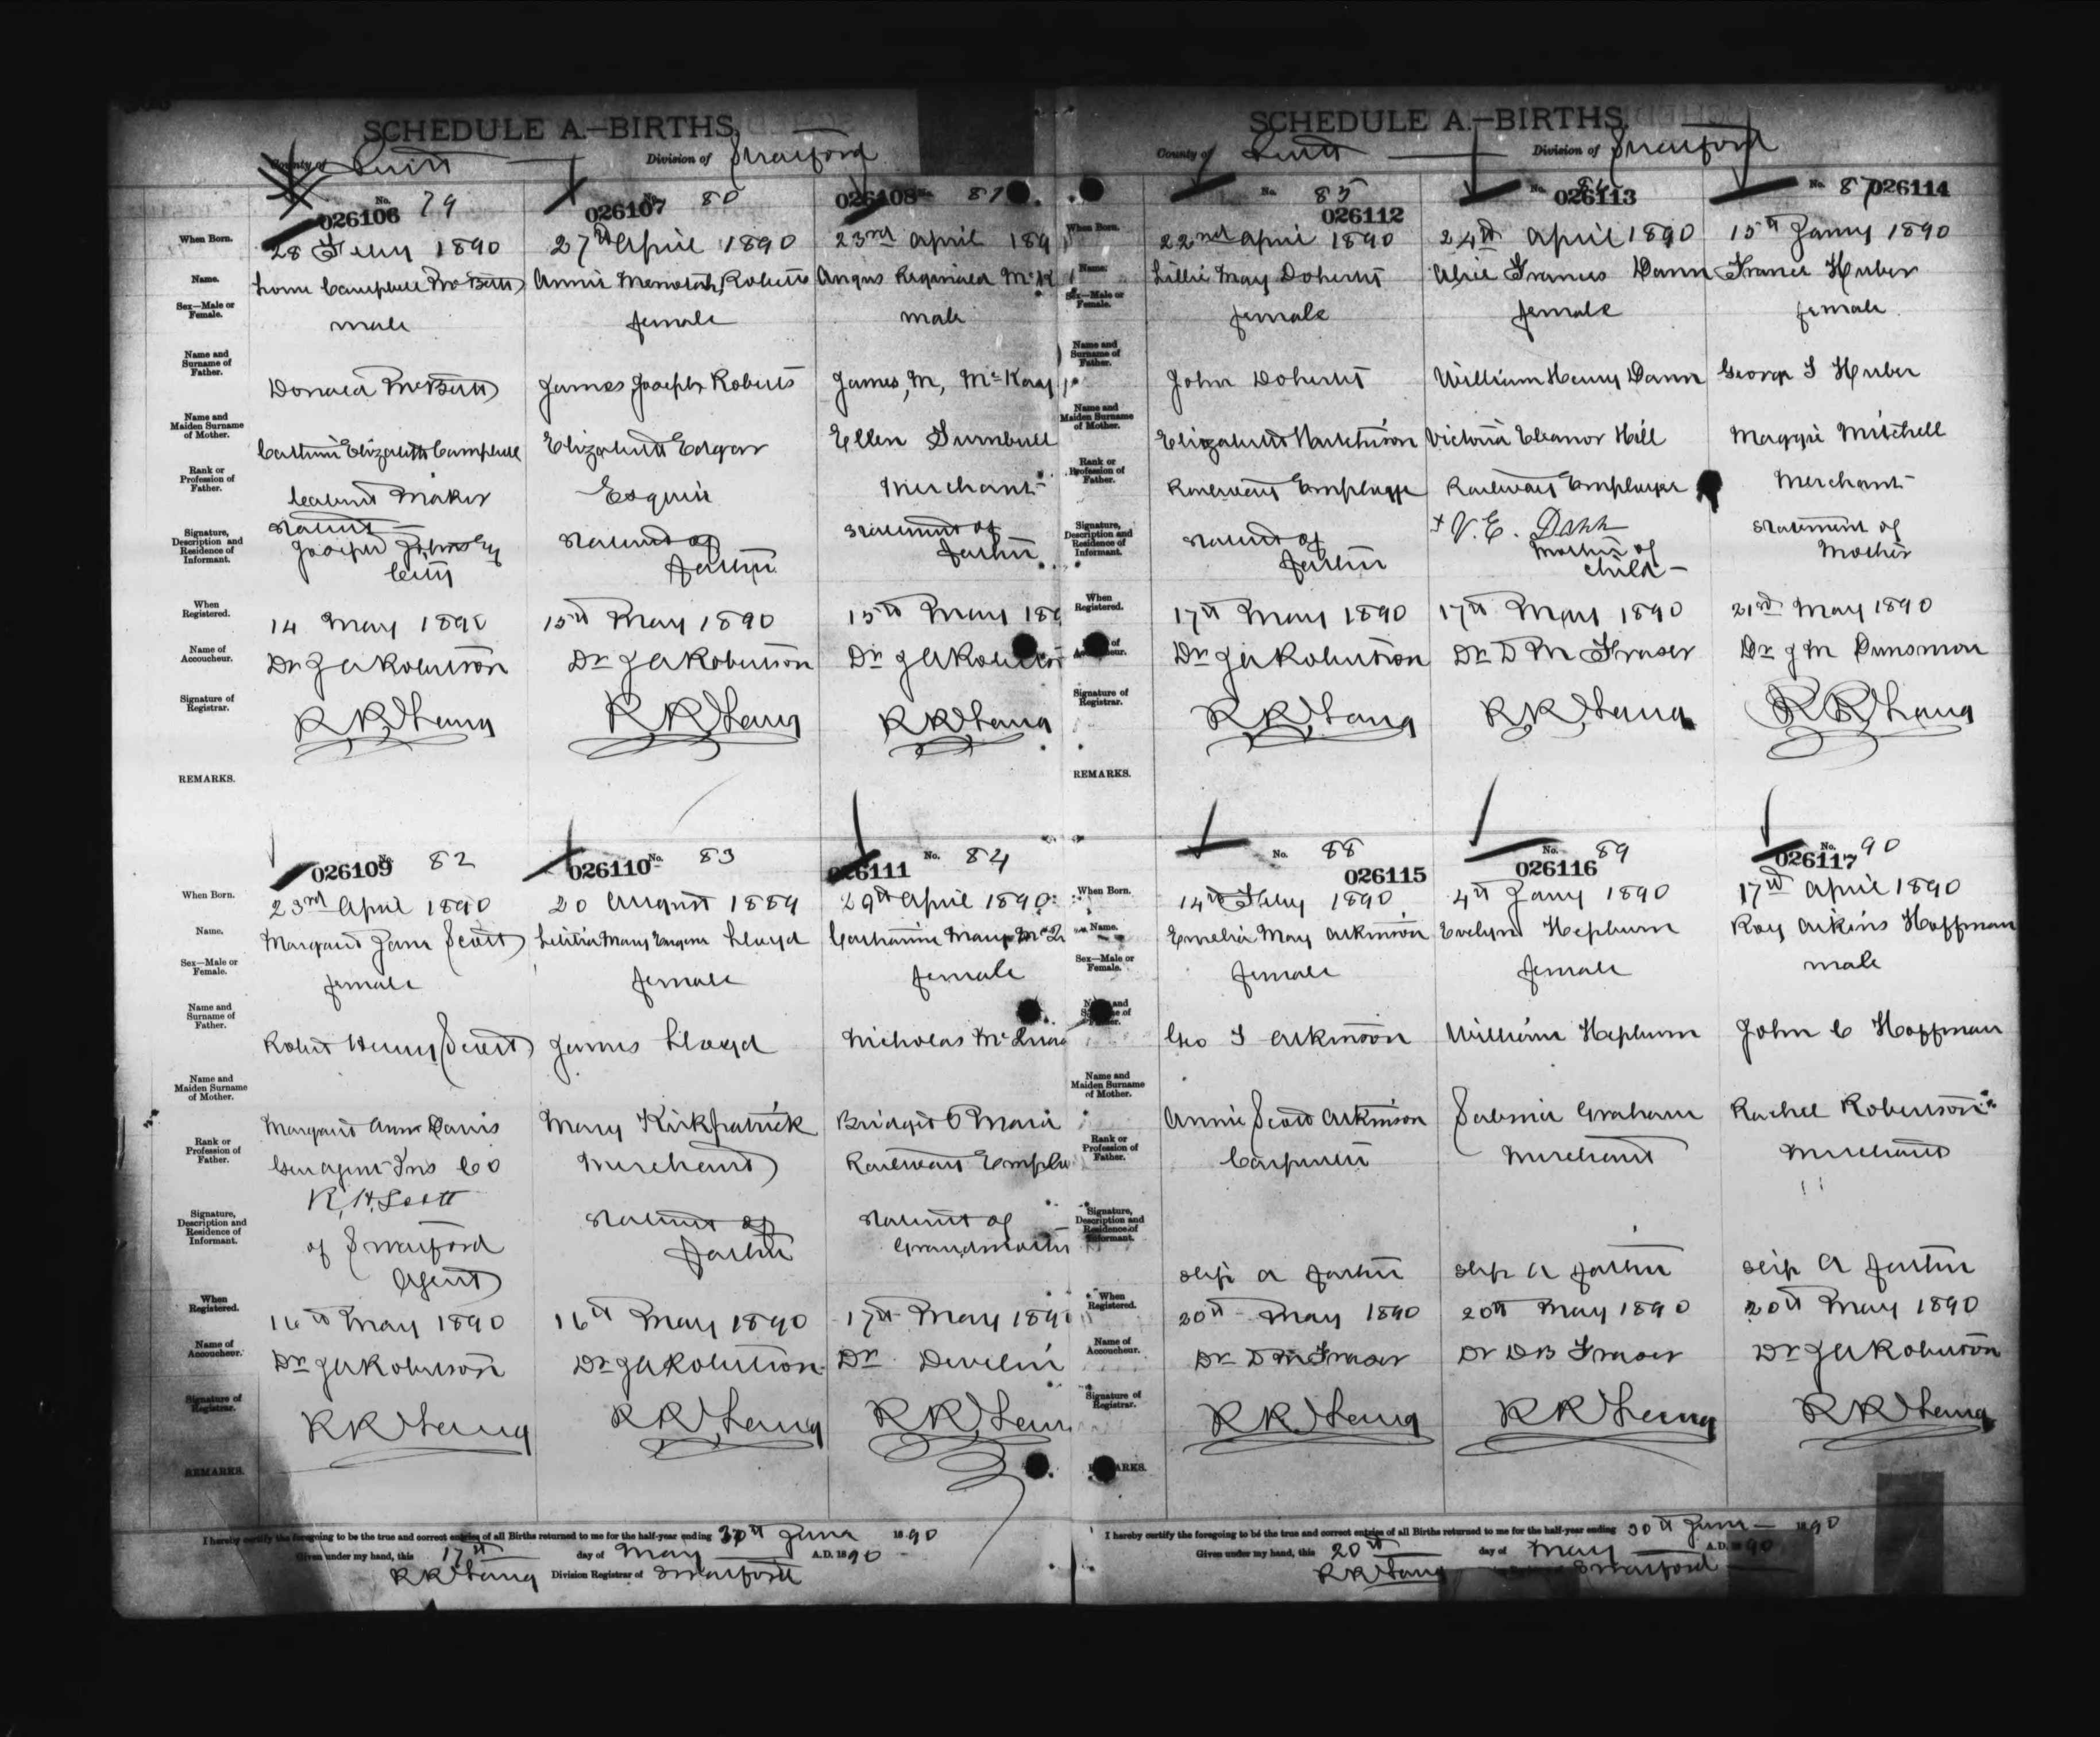 SCHEDULE A.—BIRTHS.
County of Perth Division of Stratford
No. 79
026106
No. 80
026107
No. 81
026108
When Born.
28 Feby 1890
27th April 1890
23rd April 189
Name.
Lorne Campbell McBeth
Annie Roberts
Angus Reginald McK
Sex—Male or Female.
male
female
male
Name and Surname of Father.
Donald McBeth
James Joseph Roberts
James, M, McKay
Name and Maiden Surname of Mother.
Elizabeth Campbell
Elizabeth Edgar
Ellen Turnbull
Rank or Profession of Father.
Cabinet Maker
Esquire
Merchant
Signature, Description and Residence of Informant.
Joseph
City
Statement of father
Statement of father
When Registered.
14 May 1890
15th May 1890
15th May 189
Name of Accoucheur.
Dr J A Robertson
Dr J A Robertson
Dr J A Robertson
Signature of Registrar.
R R Lang
R R Lang
R R Lang
REMARKS.
No. 82
026109
No. 83
026110
No. 84
026111
When Born.
23rd April 1890
20 August 1889
29th April 1890
Name.
Margaret Jane Scott
Letitia Mary Lloyd
Catharine Mary
Sex—Male or Female.
female
female
female
Name and Surname of Father.
Robert Henry Scott
James Lloyd
Nicholas
Name and Maiden Surname of Mother.
Margaret Ann Davis
Mary Kirkpatrick
Bridget O Mara
Rank or Profession of Father.
Gen agent Ins Co
Merchant
Railway Employ
Signature, Description and Residence of Informant.
R. H. Scott
of Stratford
Agent
Statement of father
Statement of Grandmother
When Registered.
16th May 1890
16th May 1890
17th May 189
Name of Accoucheur.
Dr J A Robertson
Dr J A Robertson
Dr Devlin
Signature of Registrar.
R R Lang
R R Lang
R R Lang
REMARKS.
I hereby certify the foregoing to be the true and correct entries of all Births returned to me for the half-year ending 30th June 1890
Given under my hand, this 17th day of May A.D. 1890
R R Lang Division Registrar of Stratford
SCHEDULE A.—BIRTHS.
County of Perth Division of Stratford
No. 85
026112
No.
026113
No. 87
026114
When Born.
22nd April 1890
24th April 1890
15th Jany 1890
Name.
Lillie May Doherty
Alice Frances Dann
Huber
Sex—Male or Female.
female
female
female
Name and Surname of Father.
John Doherty
William Henry Dann
George T Huber
Name and Maiden Surname of Mother.
Elizabeth Hutchison
Victoria Eleanor Hill
Maggie Mitchell
Rank or Profession of Father.
Railway Employee
Railway Employee
Merchant
Signature, Description and Residence of Informant.
Statement of father
+ V. E. Dann
Mother of child
Statement of Mother
When Registered.
17th May 1890
17th May 1890
21st May 1890
Name of Accoucheur.
Dr J A Robertson
Dr D M Fraser
Dr J M Dunsmore
Signature of Registrar.
R R Lang
R R Lang
R R Lang
REMARKS.
No. 88
026115
No. 89
026116
No. 90
026117
When Born.
14th Feby 1890
4th Jany 1890
17th April 1890
Name.
Emelia May Atkinson
Evelyn Hepburn
Roy Aikins Hoffman
Sex—Male or Female.
female
female
male
Name and Surname of Father.
Geo T Atkinson
William Hepburn
John C Hoffman
Name and Maiden Surname of Mother.
Annie Scott Atkinson
Graham
Rachel Robertson
Rank or Profession of Father.
Carpenter
Merchant
Merchant
Signature, Description and Residence of Informant.
slip a father
slip a father
slip a father
When Registered.
20th May 1890
20th May 1890
20th May 1890
Name of Accoucheur.
Dr D M Fraser
Dr D B Fraser
Dr J A Robertson
Signature of Registrar.
R R Lang
R R Lang
R R Lang
REMARKS.
I hereby certify the foregoing to be the true and correct entries of all Births returned to me for the half-year ending 30th June 1890
Given under my hand, this 20th day of May A.D. 1890
R R Lang Stratford